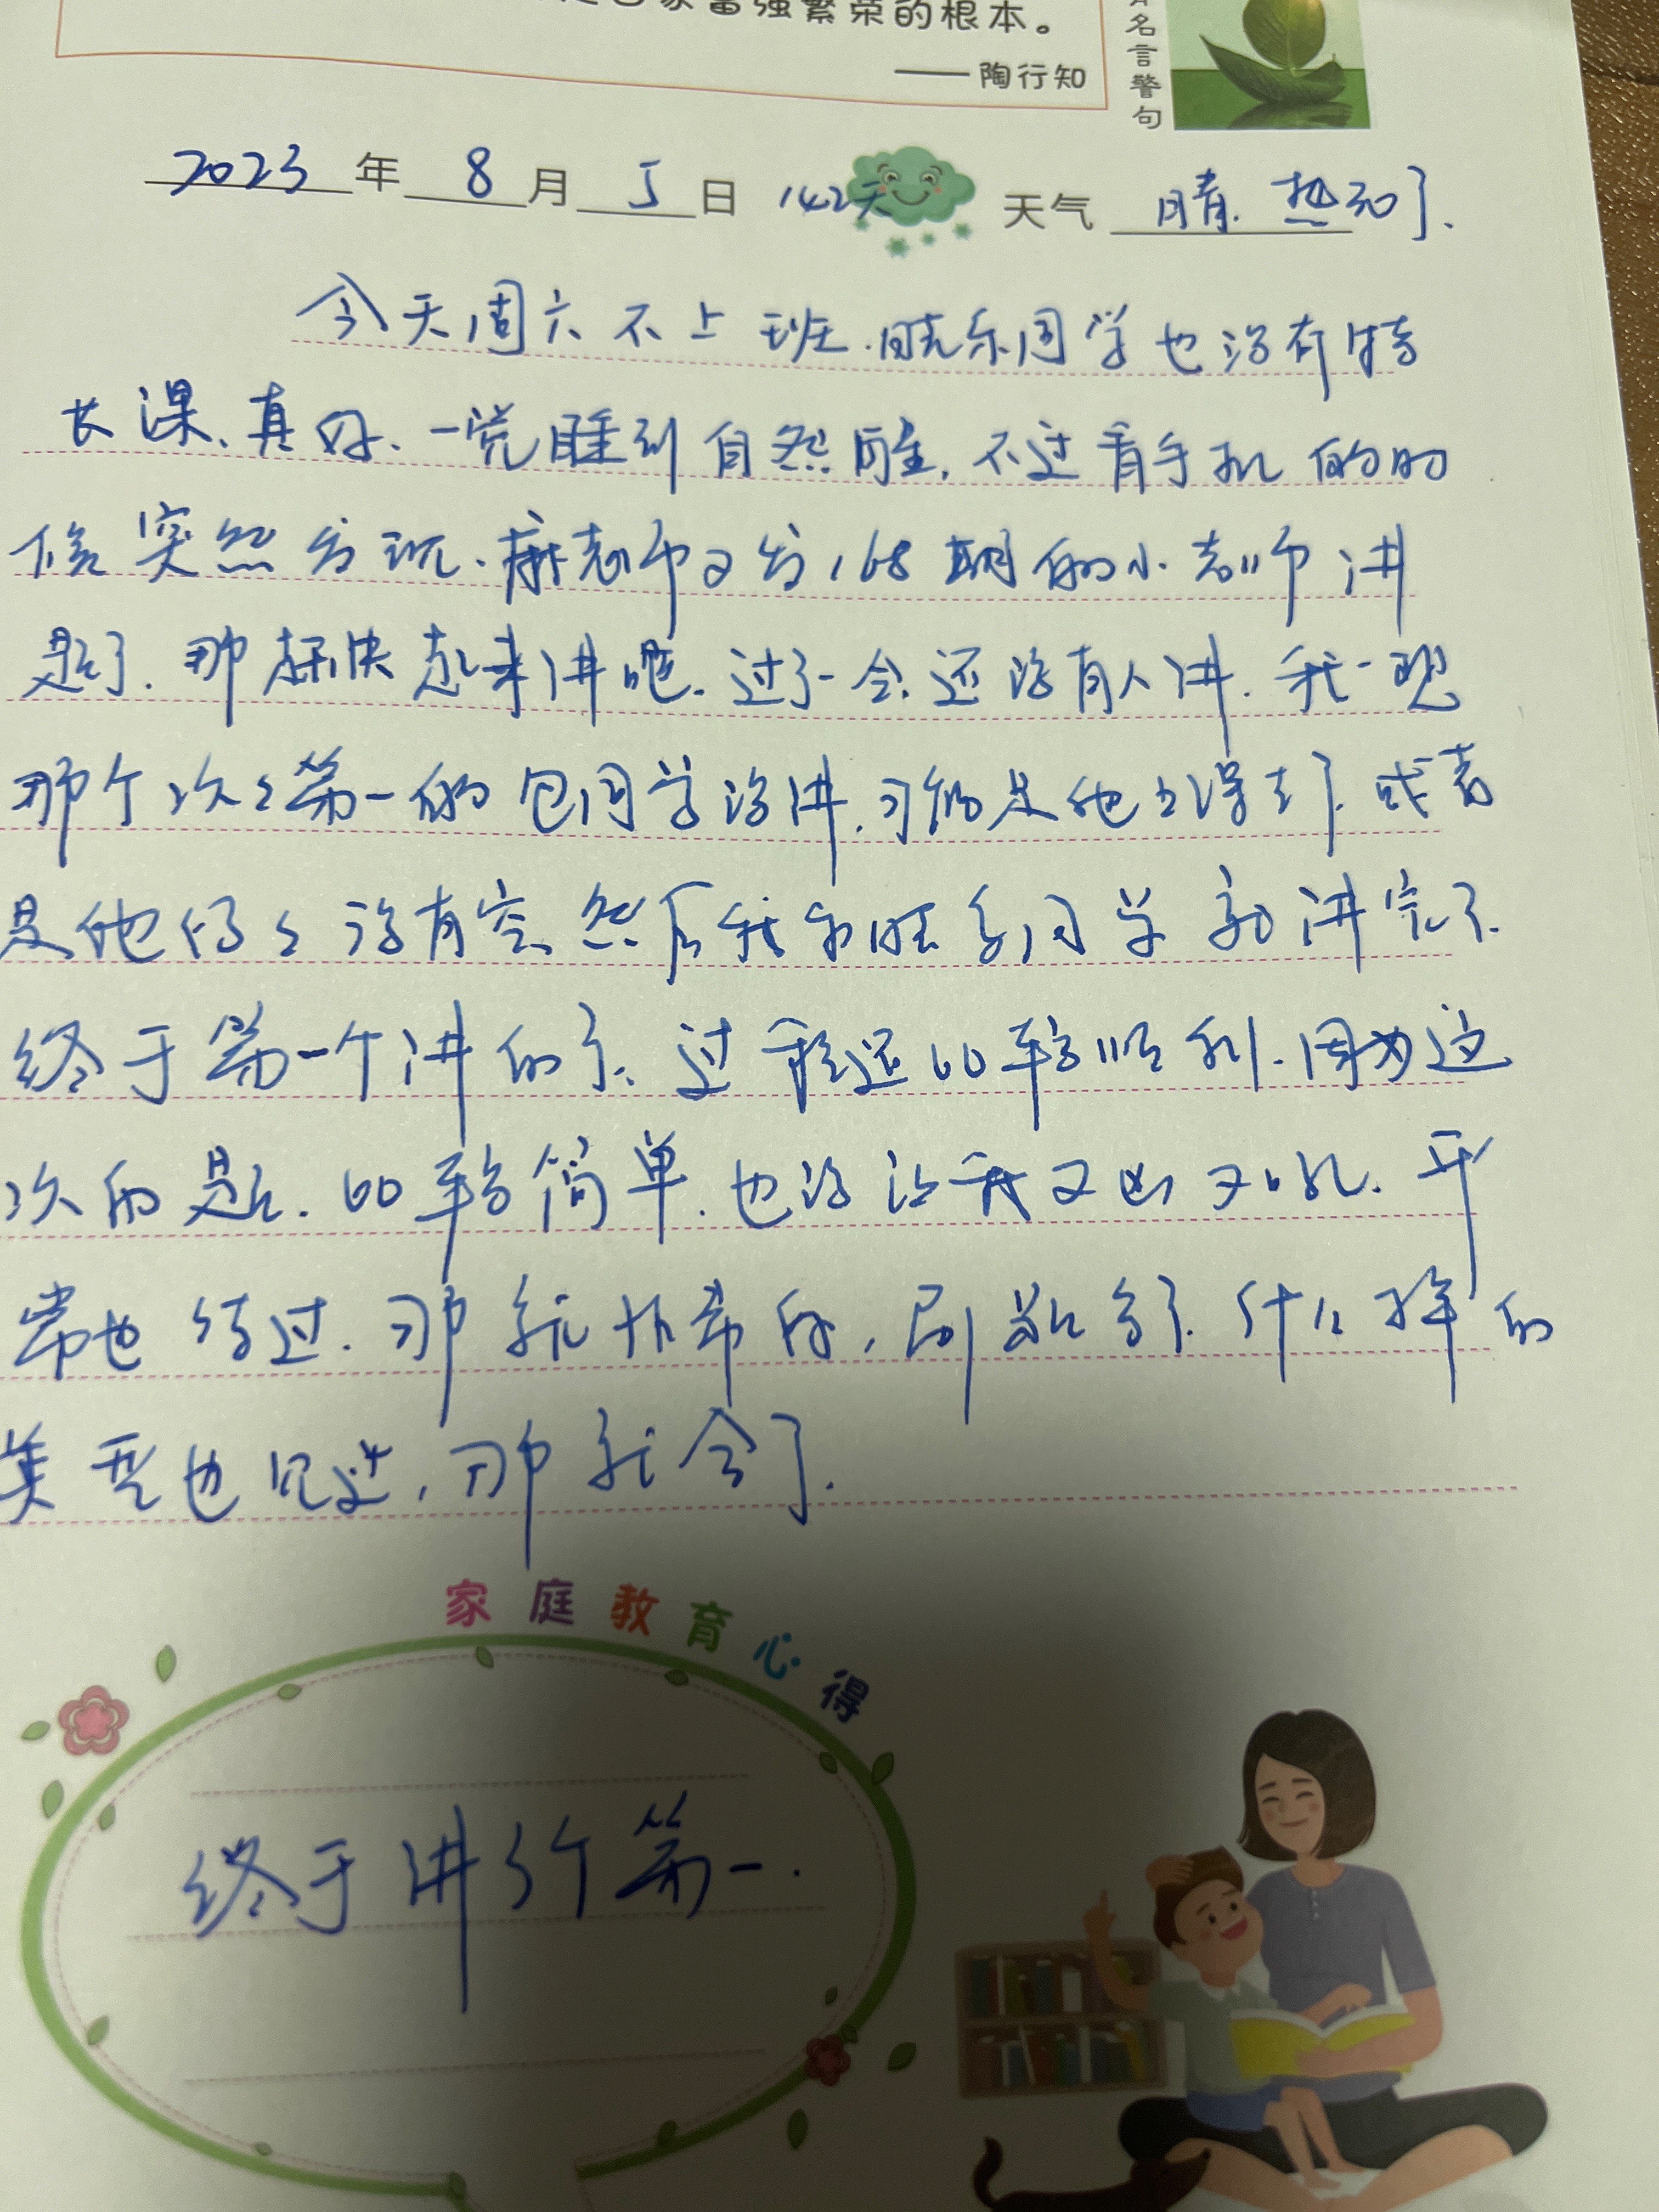 富强繁荣的根本。
——陶行知
名言警句
2023年8月5日 142天 天气 晴.热
今天周六不上班.晓乐同学也没有特
长课、真好、一觉睡到自然醒,不过看手机的时
候突然发现.麻老师又发168期的小老师讲
题了.那赶快起来讲吧.过了一会.还没有人讲.我一想
那个次次第一的包同学没讲.可能是他上课去了.或者
是他妈妈没有空、然后我和晓乐同学就讲完了.
终于第一个讲的了、过程还比较顺利.因为这
次的题.比较简单.也没让我又凶又吼.平
常也练过.那就非常的,刷题多了.什么样的
类型也见过,那就会了.
家庭教育心得
终于讲了个第一.